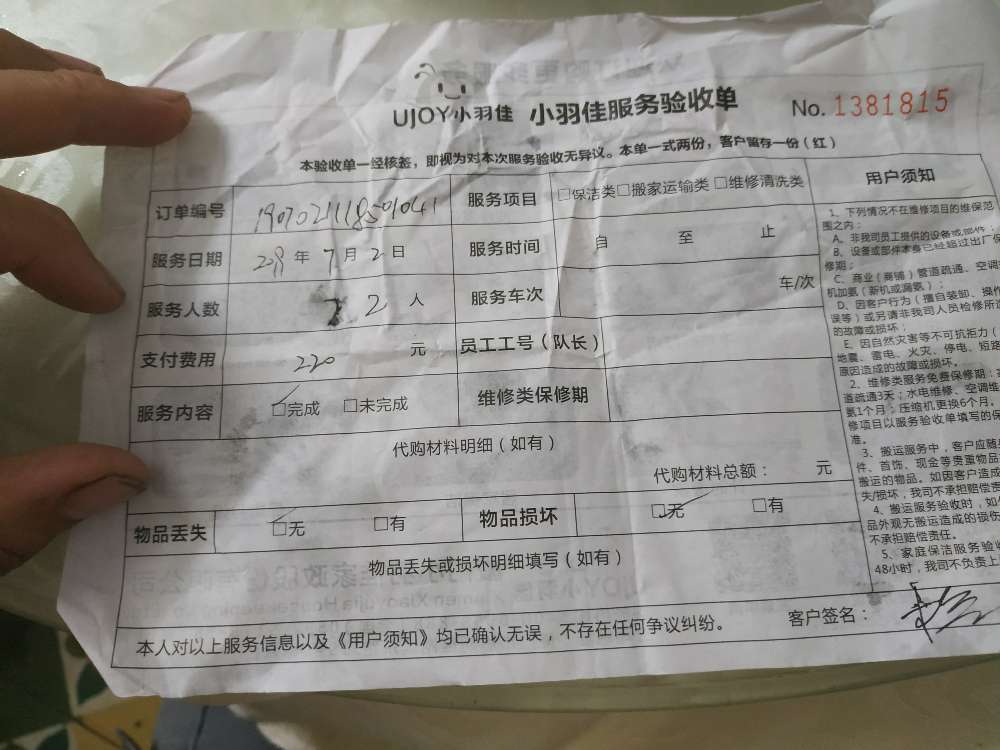 UJOY小羽佳 小羽佳服务验收单 No. 1381815
本验收单一经核签，即视为对本次服务验收无异议。本单一式两份，客户留存一份（红）
订单编号 190702111850 1041 服务项目 □保洁类□搬家运输类 □维修清洗类
服务日期 2019 年 7 月 2 日 服务时间 自 至 止
服务人数 2 人 服务车次 车/次
支付费用 220 元 员工工号（队长）
服务内容 □完成 □未完成 维修类保修期
代购材料明细（如有）
代购材料总额： 元
物品丢失 □无 □有 物品损坏 □无 □有
物品丢失或损坏明细填写（如有）
本人对以上服务信息以及《用户须知》均已确认无误，不存在任何争议纠纷。 客户签名：
用户须知
1、下列情况不在维修项目的维保范
围之内：
A、非我司员工提供的设备或部件；
B、设备或部件本身已经超过出厂保
修期；
C、商业（商铺）管道疏通、空调
机加氨（新机或漏氨）；
D、因客户行为（擅自装卸、操作
误等）或另请非我司人员检修所
的故障或损坏；
E、因自然灾害等不可抗拒力（
地震、雷电、火灾、停电、短路
原因造成的故障或损坏。
2、维修类服务免费保修期：
道疏通3天；水电维修、空调
氨1个月；压缩机更换6个月。
修项目以服务验收单填写的保
准。
3、搬运服务中，客户应随身
件、首饰、现金等贵重物品
搬运的物品。如因客户造成
失/损坏，我司不承担赔偿责
4、搬运服务验收时，如
品外观无搬运造成的损伤
不承担赔偿责任。
5、家庭保洁服务验收
48小时，我司不负责上